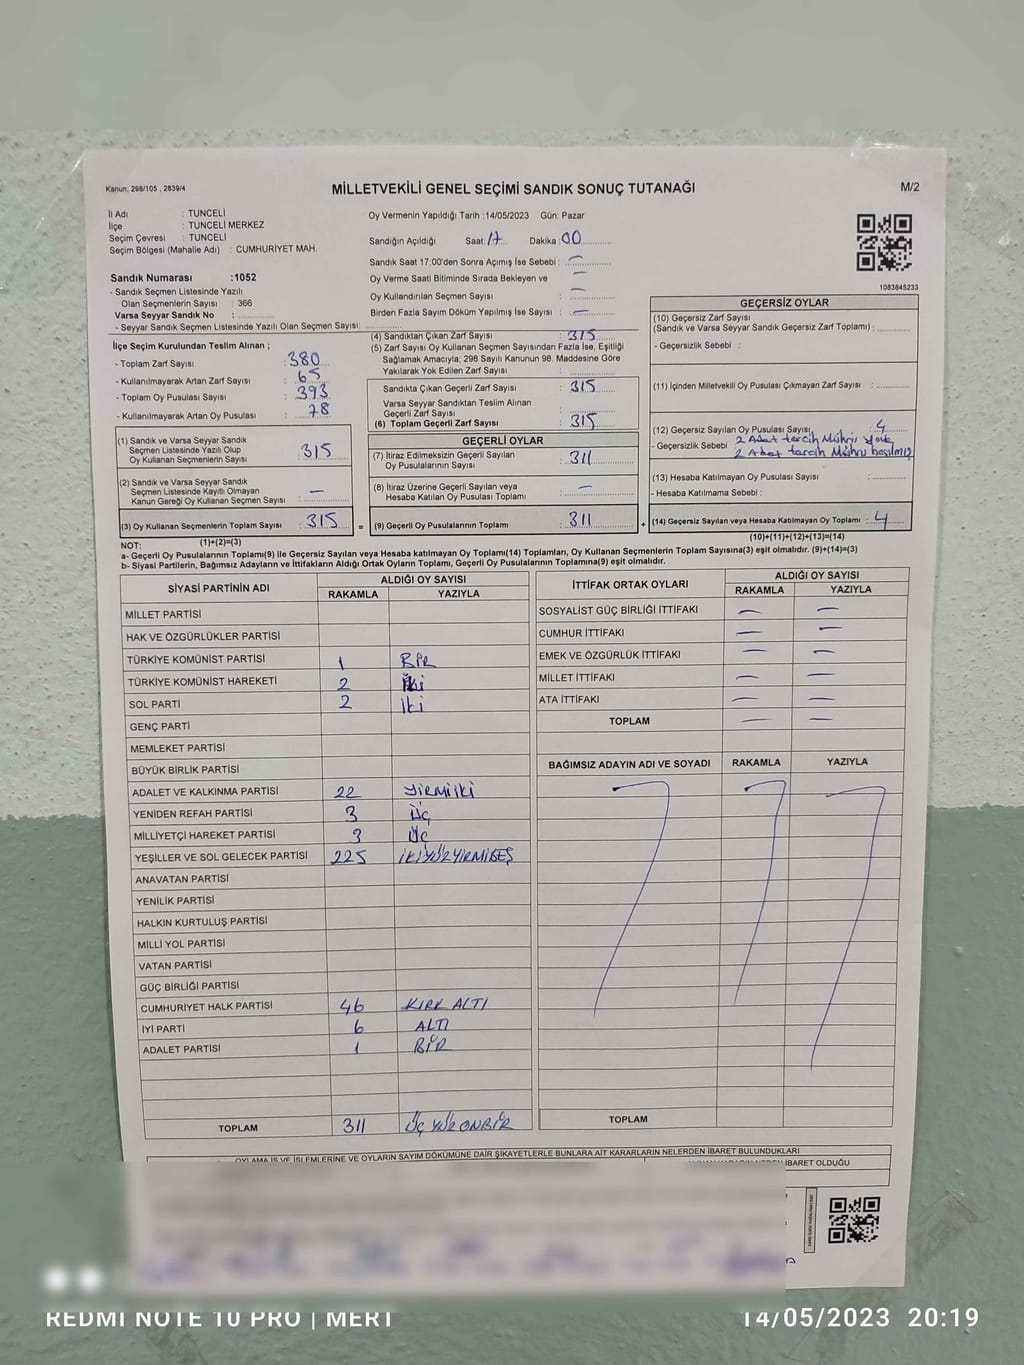 Kanun: 298/105 , 2839/4
MİLLETVEKİLİ GENEL SEÇİMİ SANDIK SONUÇ TUTANAĞI
M/2
İl Adı : TUNCELİ
İlçe : TUNCELİ MERKEZ
Seçim Çevresi : TUNCELİ
Seçim Bölgesi (Mahalle Adı) : CUMHURİYET MAH.
Sandık Numarası :1052
- Sandık Seçmen Listesinde Yazılı
Olan Seçmenlerin Sayısı : 366
Varsa Seyyar Sandık No :
- Seyyar Sandık Seçmen Listesinde Yazılı Olan Seçmen Sayısı:
İlçe Seçim Kurulundan Teslim Alınan ;
- Toplam Zarf Sayısı : 380
- Kullanılmayarak Artan Zarf Sayısı : 65
- Toplam Oy Pusulası Sayısı : 393
- Kullanılmayarak Artan Oy Pusulası : 78
(1) Sandık ve Varsa Seyyar Sandık
Seçmen Listesinde Yazılı Olup
Oy Kullanan Seçmenlerin Sayısı : 315
(2) Sandık ve Varsa Seyyar Sandık
Seçmen Listesinde Kayıtlı Olmayan
Kanun Gereği Oy Kullanan Seçmen Sayısı : —
(3) Oy Kullanan Seçmenlerin Toplam Sayısı : 315 =
(1)+(2)=(3)
Oy Vermenin Yapıldığı Tarih :14/05/2023 Gün: Pazar
Sandığın Açıldığı Saat: 17 Dakika: 00
Sandık Saat 17:00'den Sonra Açımış İse Sebebi : —
Oy Verme Saati Bitiminde Sırada Bekleyen ve —
Oy Kullandırılan Seçmen Sayısı : —
Birden Fazla Sayım Döküm Yapılmış İse Sayısı : —
(4) Sandıktan Çıkan Zarf Sayısı : 315
(5) Zarf Sayısı Oy Kullanan Seçmen Sayısından Fazla İse, Eşitliği
Sağlamak Amacıyla; 298 Sayılı Kanunun 98. Maddesine Göre
Yakılarak Yok Edilen Zarf Sayısı :
Sandıkta Çıkan Geçerli Zarf Sayısı : 315
Varsa Seyyar Sandıktan Teslim Alınan
Geçerli Zarf Sayısı :
(6) Toplam Geçerli Zarf Sayısı : 315
GEÇERLİ OYLAR
(7) İtiraz Edilmeksizin Geçerli Sayılan
Oy Pusulalarının Sayısı : 311
(8) İtiraz Üzerine Geçerli Sayılan veya
Hesaba Katılan Oy Pusulası Toplamı : —
(9) Geçerli Oy Pusulalarının Toplamı : 311 +
1083845233
GEÇERSİZ OYLAR
(10) Geçersiz Zarf Sayısı
(Sandık ve Varsa Seyyar Sandık Geçersiz Zarf Toplamı) :
- Geçersizlik Sebebi :
(11) İçinden Milletvekili Oy Pusulası Çıkmayan Zarf Sayısı :
(12) Geçersiz Sayılan Oy Pusulası Sayısı : 4
- Geçersizlik Sebebi : 2 Adet tercih Mührü yok
2 Adet tercih Mührü basılmış
(13) Hesaba Katılmayan Oy Pusulası Sayısı :
- Hesaba Katılmama Sebebi :
(14) Geçersiz Sayılan veya Hesaba Katılmayan Oy Toplamı : 4
(10)+(11)+(12)+(13)=(14)
NOT:
a- Geçerli Oy Pusulalarının Toplamı(9) ile Geçersiz Sayılan veya Hesaba katılmayan Oy Toplamı(14) Toplamları, Oy Kullanan Seçmenlerin Toplam Sayısına(3) eşit olmalıdır. (9)+(14)=(3)
b- Siyasi Partilerin, Bağımsız Adayların ve İttifakların Aldığı Ortak Oyların Toplamı, Geçerli Oy Pusulalarının Toplamına(9) eşit olmalıdır.
SİYASİ PARTİNİN ADI ALDIĞI OY SAYISI
RAKAMLA YAZIYLA
MİLLET PARTİSİ
HAK VE ÖZGÜRLÜKLER PARTİSİ
TÜRKİYE KOMÜNİST PARTİSİ 1 BİR
TÜRKİYE KOMÜNİST HAREKETİ 2 İki
SOL PARTİ 2 İki
GENÇ PARTİ
MEMLEKET PARTİSİ
BÜYÜK BİRLİK PARTİSİ
ADALET VE KALKINMA PARTİSİ 22 yirmiiki
YENİDEN REFAH PARTİSİ 3 Üç
MİLLİYETÇİ HAREKET PARTİSİ 3 Üç
YEŞİLLER VE SOL GELECEK PARTİSİ 225 İKİYÜZYİRMİBEŞ
ANAVATAN PARTİSİ
YENİLİK PARTİSİ
HALKIN KURTULUŞ PARTİSİ
MİLLİ YOL PARTİSİ
VATAN PARTİSİ
GÜÇ BİRLİĞİ PARTİSİ
CUMHURİYET HALK PARTİSİ 46 KIRK ALTI
İYİ PARTİ 6 ALTI
ADALET PARTİSİ 1 BİR
TOPLAM 311 ÜÇ YÜZ ONBİR
İTTİFAK ORTAK OYLARI ALDIĞI OY SAYISI
RAKAMLA YAZIYLA
SOSYALİST GÜÇ BİRLİĞİ İTTİFAKI — —
CUMHUR İTTİFAKI — —
EMEK VE ÖZGÜRLÜK İTTİFAKI — —
MİLLET İTTİFAKI — —
ATA İTTİFAKI — —
TOPLAM — —
BAĞIMSIZ ADAYIN ADI VE SOYADI RAKAMLA YAZIYLA
TOPLAM
OYLAMA İŞ VE İŞLEMLERİNE VE OYLARIN SAYIM DÖKÜMÜNE DAİR ŞİKAYETLERLE BUNLARA AİT KARARLARIN NELERDEN İBARET BULUNDUKLARI
İBARET OLDUĞU
REDMI NOTE 10 PRO | MERT
14/05/2023 20:19